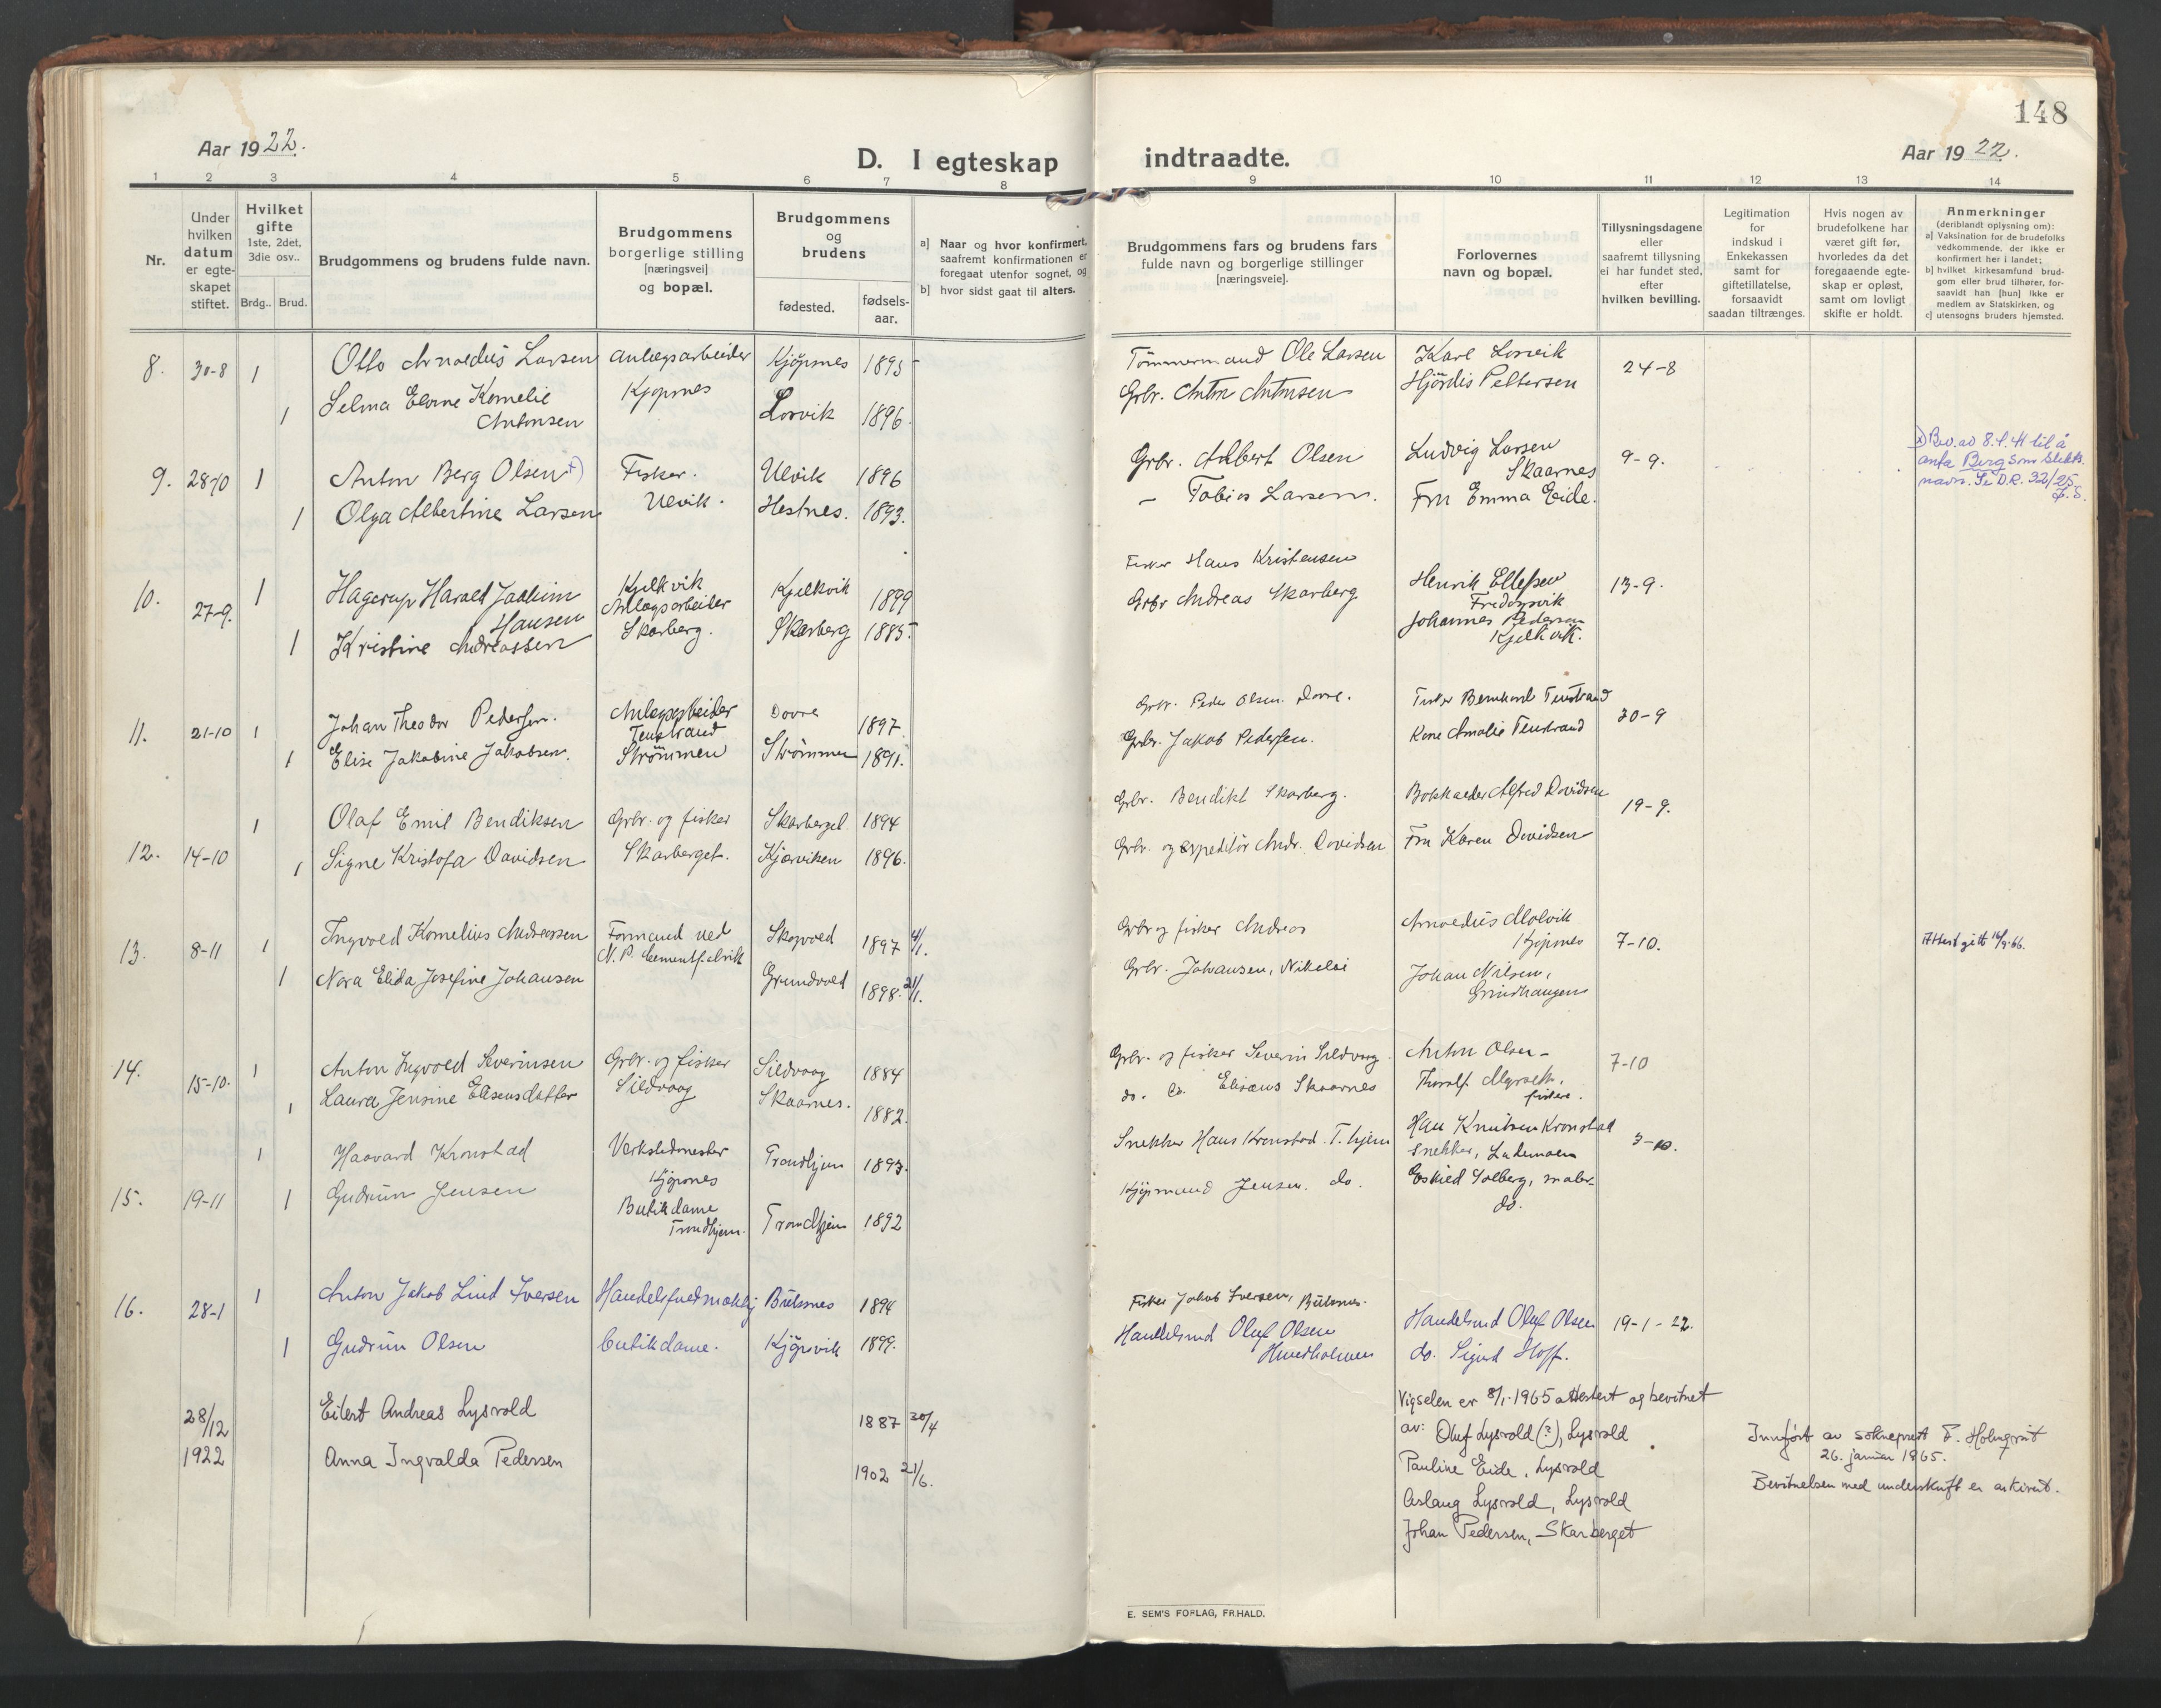 148
Aar 1922.
D. I egteskap indtraadte.
Aar 1922.
1 2 3 4 5 6 7 8 9 10 11 12 13 14
Nr.
Under hvilken datum er egteskapet stiftet.
Hvilket gifte 1ste, 2det, 3die osv..
Brdg.. Brud.
Brudgommens og brudens fulde navn.
Brudgommens borgerlige stilling [næringsvei] og bopæl.
Brudgommens og brudens
fødested.
fødselsaar.
a] Naar og hvor konfirmert, saafremt konfirmationen er foregaat utenfor sognet, og
b] hvor sidst gaat til alters.
Brudgommens fars og brudens fars fulde navn og borgerlige stillinger [næringsveie].
Forlovernes navn og bopæl.
Tillysningsdagene eller saafremt tillysning ei har fundet sted, efter hvilken bevilling.
Legitimation for indskud i Enkekassen samt for giftetillatelse, forsaavidt saadan tiltrænges.
Hvis nogen av brudefolkene har været gift før, hvorledes da det foregaaende egteskap er opløst, samt om lovligt skifte er holdt.
Anmerkninger (deriblandt oplysning om):
a] Vaksination for de brudefolks vedkommende, der ikke er konfirmert her i landet;
b] hvilket kirkesamfund brudgom eller brud tilhører, forsaavidt han [hun] ikke er medlem av Statskirken, og
c] utensogns bruders hjemsted.
8. 30-8 1 Otto Arnoldus Larsen Anlægsarbeider Kjöpsnes 1895 Tömmermand Ole Larsen Karl Losvik 24-8
Kjöpsnes Hjördis Pettersen
1 Selma Elvine Kornelie Antonsen Losvik 1896. Grbr. Anton Antonsen
9. 28-10 1 Anton Berg Olsen x) Fisker. Ulvik 1896 Grbr. Albert Olsen Ludvig Larsen Skaarnes 9-9.
x) Bev. av 8.1.41 til å anta Berg som slektsnavn. Se D.R. 32/25
1 Olga Albertine Larsen Ulvik. Hestnes. 1893. — Tobias Larsen. Fru Emma Eide.
10. 27-9. 1 Hagerup Harald Joakim Hansen Kjelkvik Anlægsarbeider Kjelkvik 1899 Fisker Hans Kristensen Henrik Ellefsen 13-9.
1 Kristine Andreassen Skarberg. Skarberg 1885. Grbr Andreas Skarberg Johannes Pedersen Kjelkvik.
11. 21-10 1 Johan Theodor Pedersen. Anlægsarbeider Dovre 1897. Grbr. Peder Olsen Dovre. Fisker Bernhard Tenstrand 20-9
Tenstrand
1 Elise Jakobine Jakobsen. Strömmen Strömmen 1891. Grbr. Jakob Pedersen. Kone Amalie Tenstrand
12. 14-10 1 Olaf Emil Bendiksen Grbr. og fisker Skarberget 1894 Grbr. Bendikt Skarberg. Bokholder Alfred Davidsen 19-9.
1 Signe Kristofa Davidsen Skarberget. Kjærviken 1896. Grbr. og expeditör Andr. Davidsen Fru Karen Davidsen
13. 8-11 1 Ingvald Kornelius Andreassen Formand ved N. P. Cementfabrik Skogvold 1897 4/1. Grbr og fisker Andreas Arnoldus Molvik Kjöpsnes 7-10. Attest gitt 16/9-66.
1 Nora Elida Josefine Johansen Grundvold 1898. 21/1. Grbr. Johansen, Nikolai Johan Nilsen, Grindhaugen
14. 15-10. 1 Anton Ingvald Severinsen Grbr. og fisker Sildvaag 1884 Grbr. og fisker Severin Sildvaag Anton Olsen – 7-10
1 Laura Jensine Eliseusdatter Sildvaag Skaarnes. 1882. do. do. Elisæus Skaarnes Thoralf fiskere.
15. 19-11 1 Haavard Kronstad Verkstedmester Kjöpsnes Trondhjem 1893. Snekker Hans Kronstad. T.hjem Hans Knutsen Kronstad snekker, Lademoen 3-10.
1 Gudrun Jensen Butikdame Trondhjem. Trondhjem 1892 Kjöpmand Jensen. do. Eskild Solberg, maler do.
16. 28-1 1 Anton Jakob Lind Iversen Bulsnes 1894 Fisker Jakob Iversen, Bulsnes. Handelsmd Oluf Olsen 19-1-22.
1 Gudrun Olsen butikdame. Kjöpsvik 1899. Handelsmd Oluf Olsen do. Sigurd Hoff.
28/12 1922 Eilert Andreas Lysvold 1887 20/4 Vigselen er 8/1-1965 attestert og bevitnet
av: Oluf Lysvold (?), Lysvold
Anna Ingvalda Pedersen 1902 21/6. Pauline Eide, Lysvold
Aslaug Lysvold, Lysvold
Johan Pedersen, Skarberget
Innført av sokneprest F. Holmqvist
26. januar 1965.
Bevitnelsen med underskrift er arkivert.
E. SEM'S FORLAG, FR.HALD.